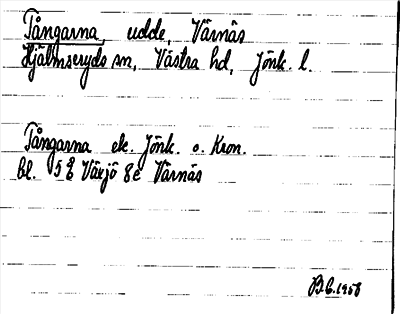 Tångarna, udde, Värnäs
Hjälmseryds sn, Västra hd, Jönk. l.
Tångarna ek. Jönk. o. Kron.
bl. 5 Växjö 8e Värnäs
B.C. 1958